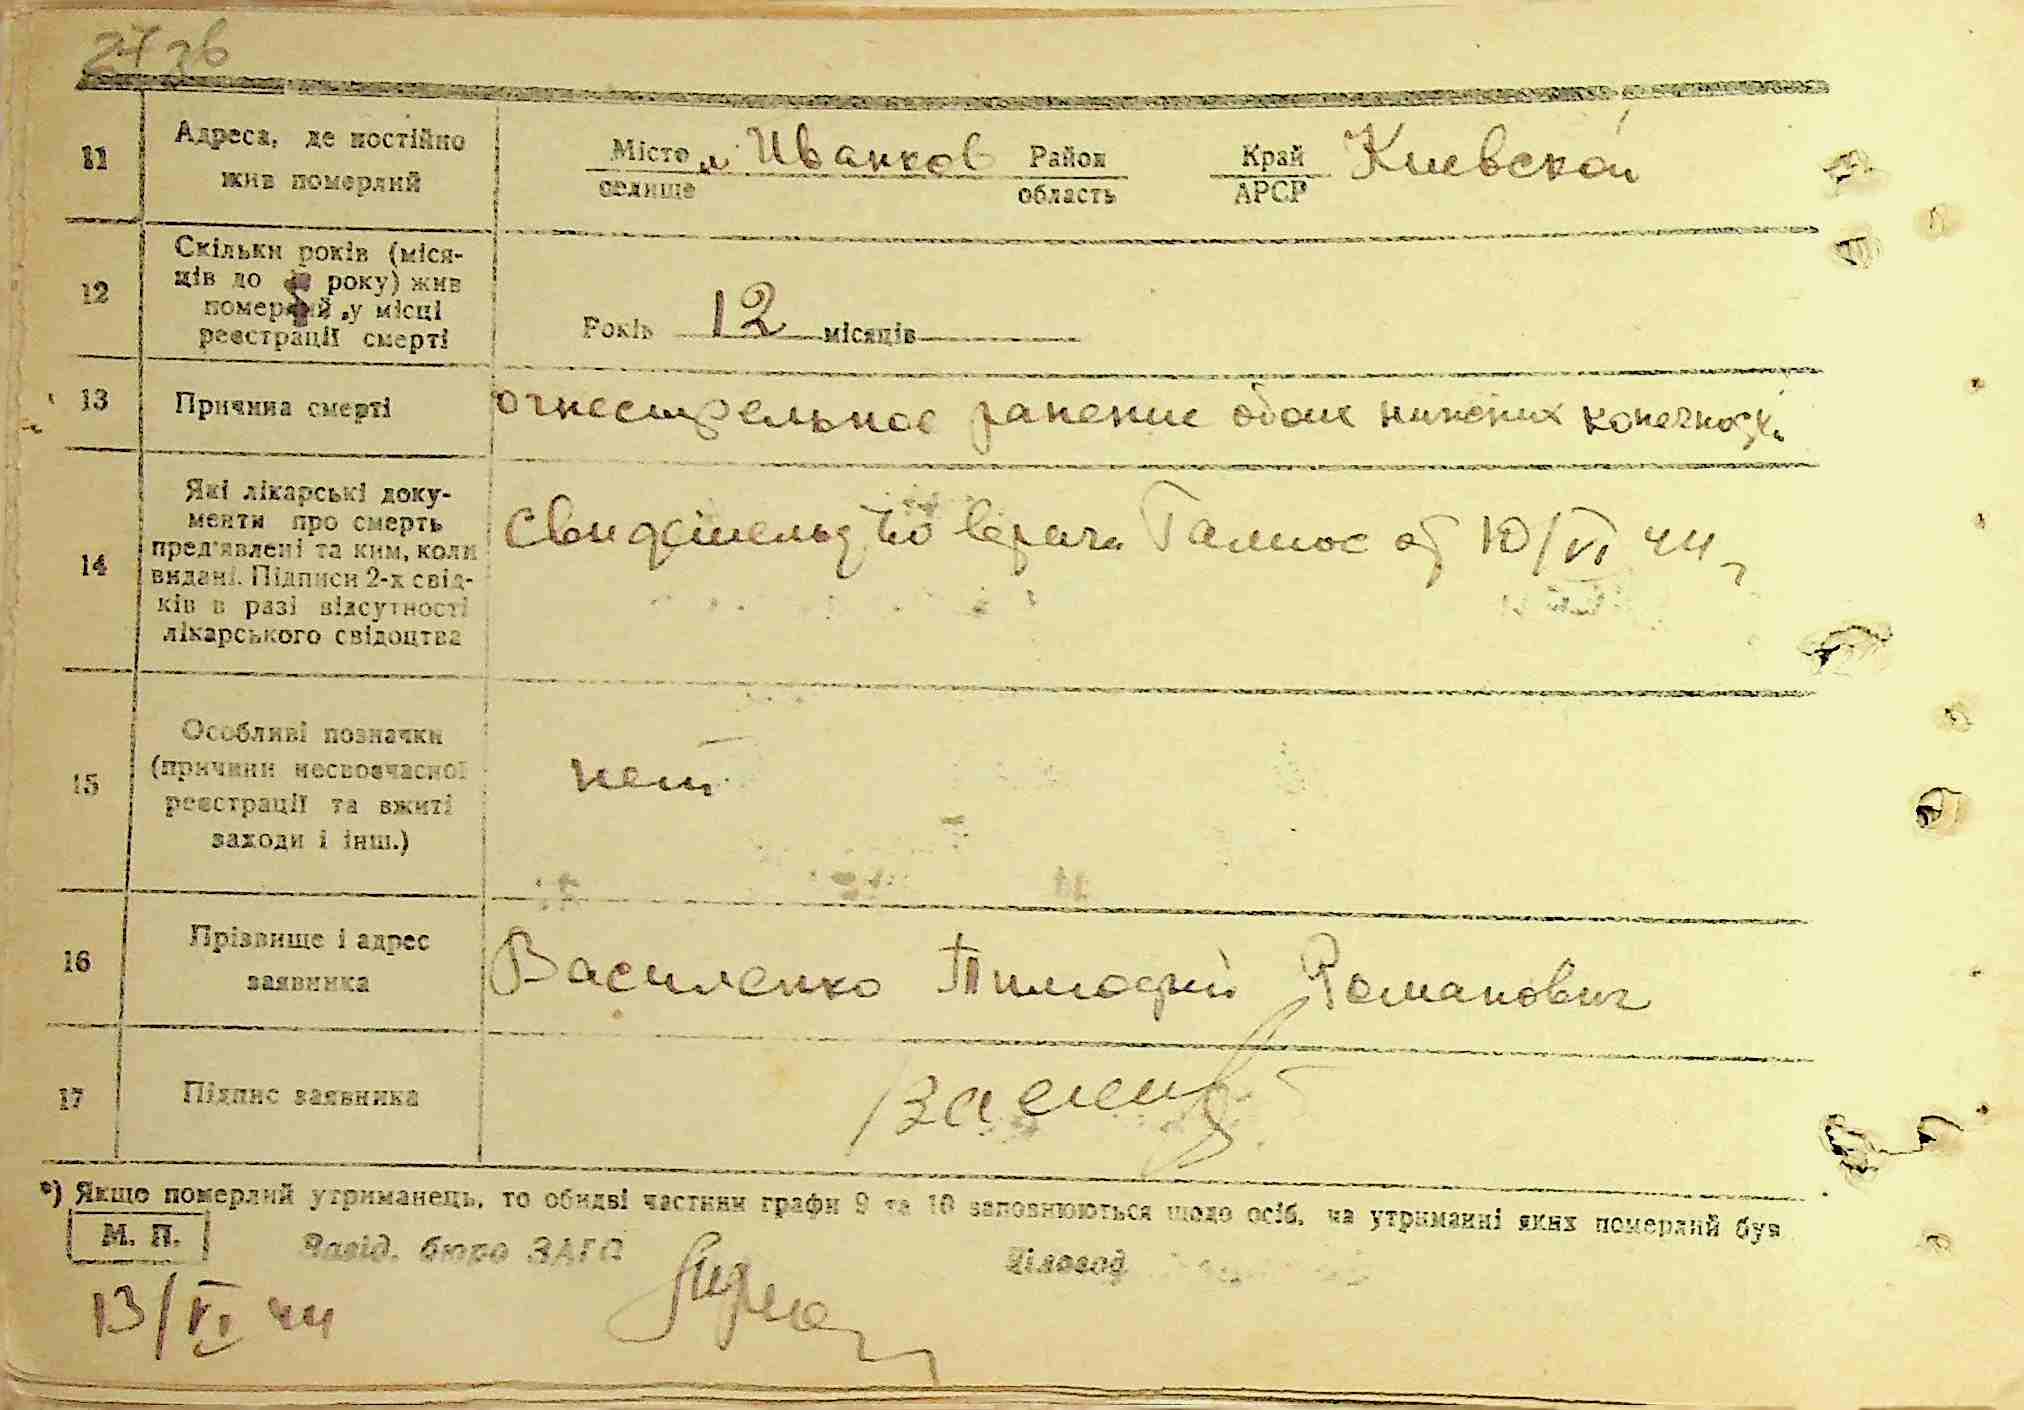 27 зв
11 Адреса, де постійно жив померлий Місто селище м. Иванков Район область Край АРСР Киевской
12 Скільки років (міся-
ців до 5 року) жив
померлий у місці
реєстрації смерті Років 12 місяців
13 Причина смерті огнестрельное ранение обоих нижених конечност.
14 Які лікарські доку-
менти про смерть
пред'явлені та ким, коли
видані. Підписи 2-х свід-
ків в разі відсутності
лікарського свідоцтва свидетельство врача от 10/VI 44 г
15 Особливі позначки
(причини несвоєчасної
реєстрації та вжиті
заходи і інш.) нет
16 Прізвище і адрес
заявника Василенко Тимофей Романович
17 Підпис заявника
*) Якщо померлий утриманець, то обидві частини графи 9 та 10 заповнюються щодо осіб, на утриманні яких померлий був
М. П. Завід. бюро ЗАГС Діловод
13/VI 44